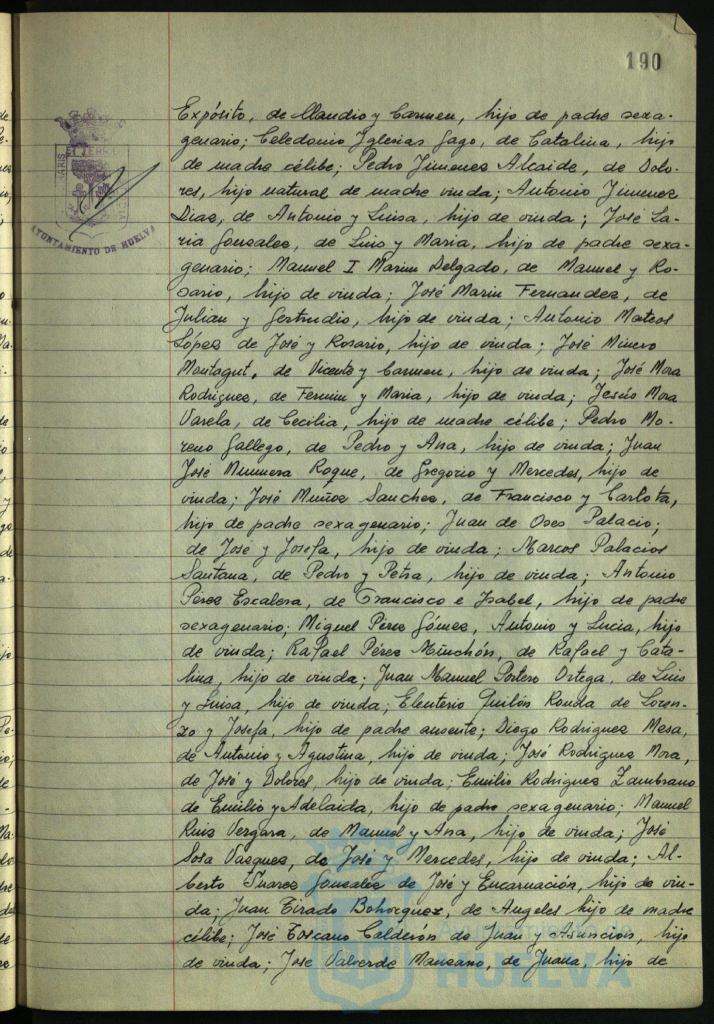 190
Expósito, de Claudio y Carmen, hijo de padre sexa-
genario; Celedonio Iglesias Gago, de Catalina, hijo
de madre célibe; Pedro Jimenez Alcaide, de Dolo-
res, hijo natural de madre viuda; Antonio Jimenez
Diaz, de Antonio y Luisa, hijo de viuda; José La-
ria Gonzalez, de Luis y Maria, hijo de padre sexa-
genario; Manuel I Marin Delgado, de Manuel y Ro-
sario, hijo de viuda; José Marin Fernandez, de
Julian y Gertrudis, hijo de viuda; Antonio Mateos
López de José y Rosario, hijo de viuda; José Minero
Montagut, de Vicente y Carmen, hijo de viuda; José Mora
Rodriguez, de Fermin y Maria, hijo de viuda; Jesús Mora
Varela, de Cecilia, hijo de madre célibe; Pedro Mo-
reno Gallego, de Pedro y Ana, hijo de viuda; Juan
José Munuera Roque, de Gregorio y Mercedes, hijo de
viuda; José Muñoz Sanchez, de Francisco y Carlota,
hijo de padre sexagenario; Juan de Oses Palacio;
de José y Josefa, hijo de viuda; Marcos Palacios
Santana, de Pedro y Petra, hijo de viuda; Antonio
Pérez Escalera, de Francisco e Isabel, hijo de padre
sexagenario; Miguel Pérez Gómez, Antonio y Lucia, hijo
de viuda; Rafael Pérez Minchón, de Rafael y Cata-
lina, hijo de viuda; Juan Manuel Portero Ortega, de Luis
y Luisa, hijo de viuda; Eleuterio Quilón Ronda de Loren-
zo y Josefa, hijo de padre ausente; Diego Rodriguez Mesa,
de Antonio y Agustina, hijo de viuda; José Rodriguez Mora,
de José y Dolores, hijo de viuda; Emilio Rodriguez Zambrano
de Emilio y Adelaida, hijo de padre sexagenario; Manuel
Ruiz Vergara, de Manuel y Ana, hijo de viuda; José
Sosa Vazquez, de José y Mercedes, hijo de viuda; Al-
berto Suarez Gonzalez de José y Encarnación, hijo de viu-
da; Juan Tirado Bohorquez, de Angeles hijo de madre
célibe; José Toscano Calderón de Juan y Asunción, hijo
de viuda; José Valverde Manzano, de Juana, hijo de
AYUNTAMIENTO DE HUELVA
HUELVA